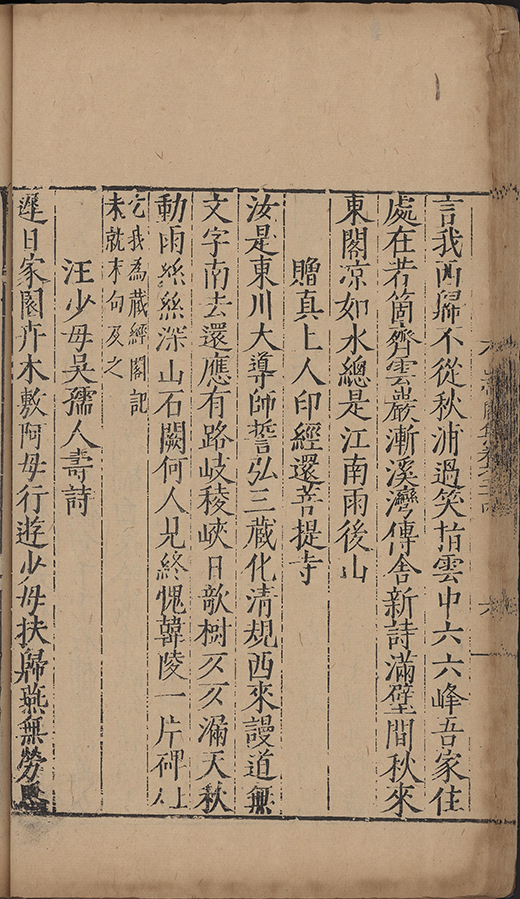 言我西歸不從秋浦過笑指雲中六六峰吾家住
處在若箇齊雲巖漸溪灣傳舍新詩滿壁間秋來
東閣凉如水總是江南雨後山
贈真上人印經還菩提寺
汝是東川大導師誓弘三藏化清規西來謾道無
文字南去還應有路岐稜峽日歌樹歹歹漏天秋
動雨絲絲深山石闕何人見終愧韓陵一片碑上人
乞我為藏經閣記
未就末句及之
汪少母吳孺人壽詩
遲日家園卉木敷阿母行遊少母扶歸燕無勞